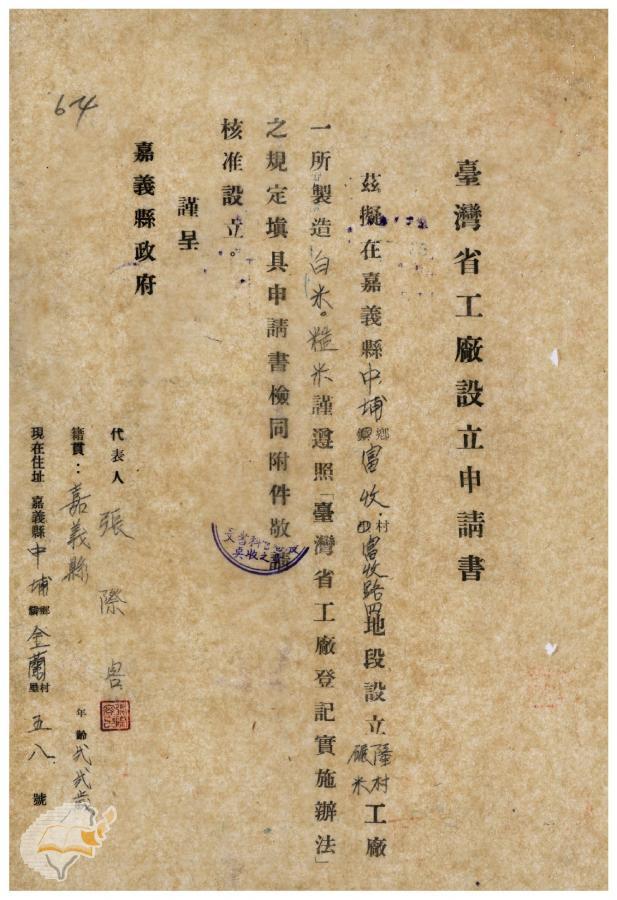 64
臺灣省工廠設立申請書
茲擬在嘉義縣中埔鄉鎮富收村里富收路四地段設立隆村碾米工廠
一所製造白米。糙米謹遵照「臺灣省工廠登記實施辦法」
之規定填具申請書檢同附件敬請
核准設立。
謹呈
嘉義縣政府
代表人 張際
籍貫：嘉義縣 年齡 弍弍歲
現在住址 嘉義縣中埔鄉鎮金蘭村里五八號